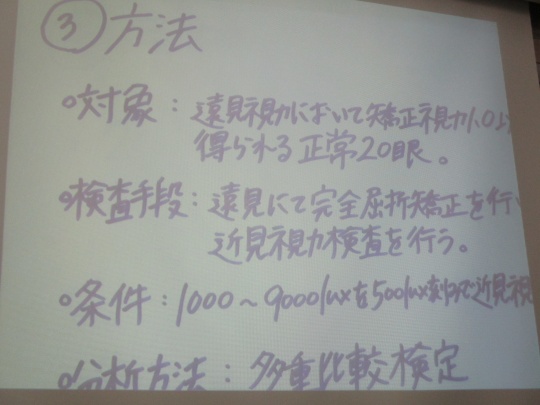 ③方法
○対象：遠見視力において矯正視力1.0以
得られる正常20眼。
○検査手段：遠見にて完全屈折矯正を行い
近見視力検査を行う。
○条件：1000～9000luxを500lux刻みで近見視
○分析方法：多重比較検定